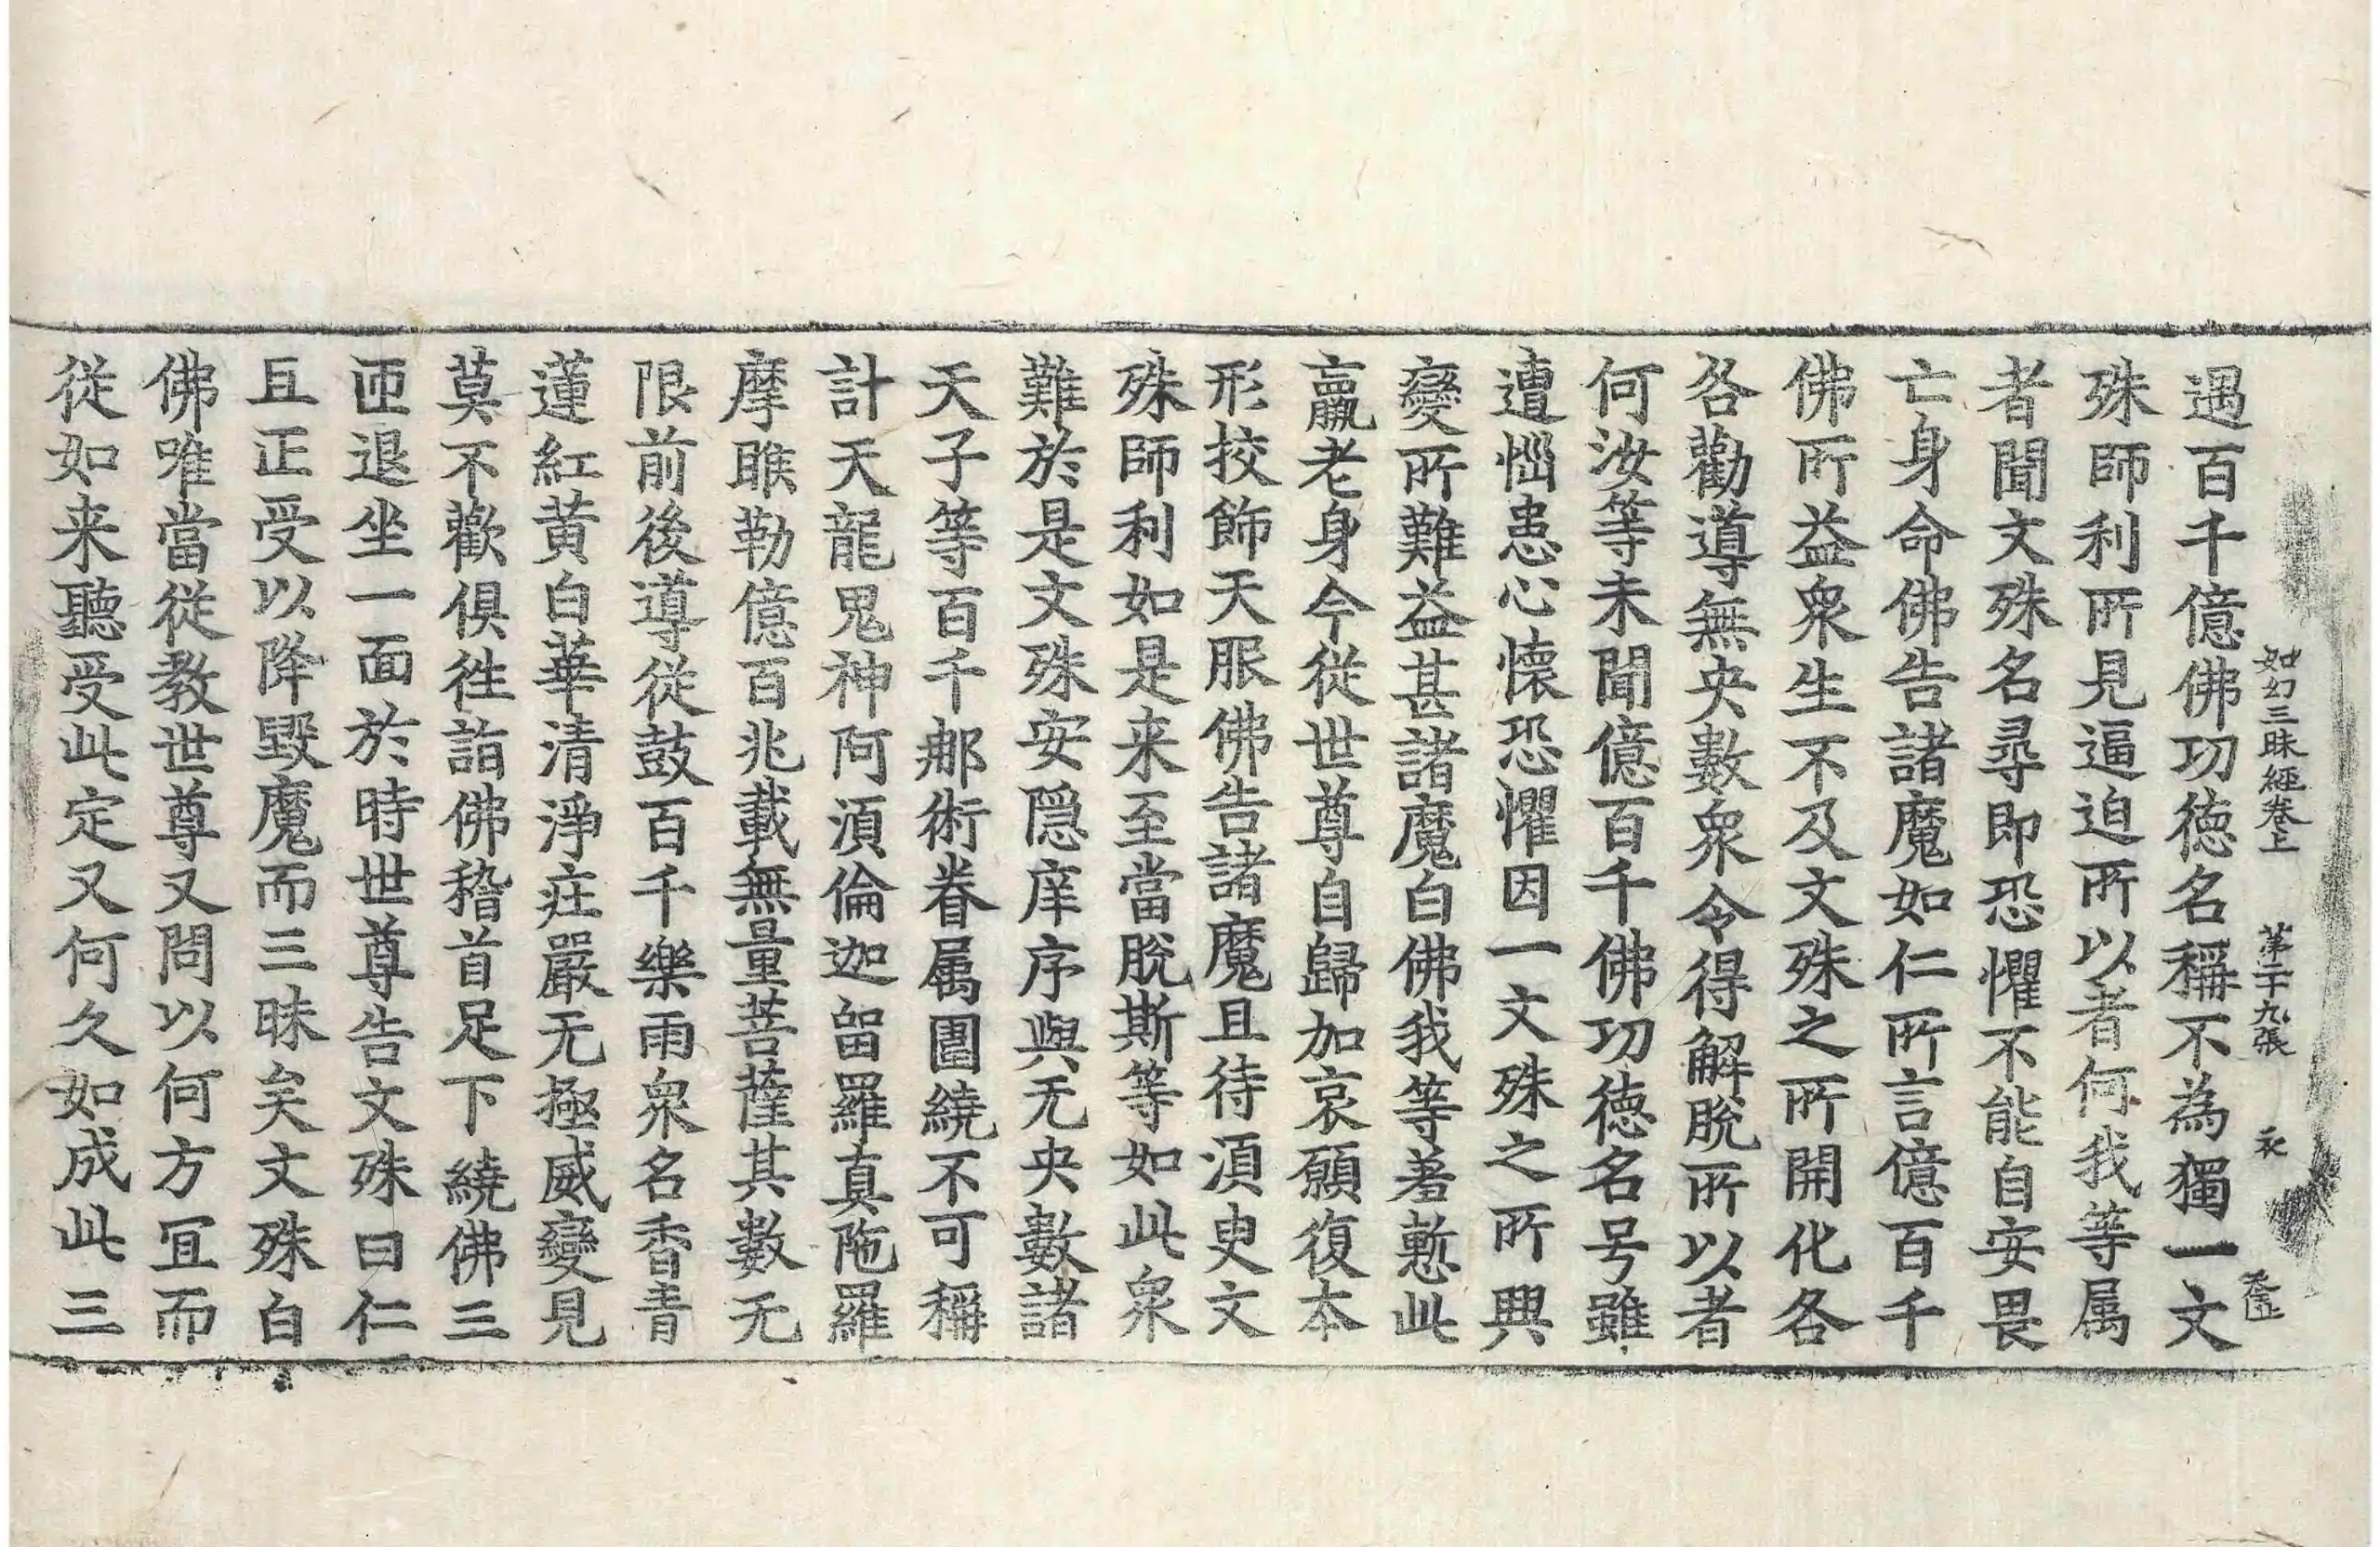 如幻三昧經卷上　第二十九張　永
遇百千億佛功德名稱不為獨一文
殊師利所見逼迫所以者何我等属
者聞文殊名尋即恐懼不能自安畏
亡身命佛告諸魔如仁所言億百千
佛所益衆生不及文殊之所開化各
各勸導無央數衆令得解脫所以者
何汝等未聞億百千佛功德名号雖
遭惱患心懷恐懼因一文殊之所興
變所難益甚諸魔白佛我等羞慙此
羸老身今從世尊自歸加哀願復本
形挍飾天服佛告諸魔且待須臾文
殊師利如是来至當脫斯等如此衆
難於是文殊安隱庠序與无央數諸
天子等百千郍術眷属圍繞不可稱
計天龍鬼神阿須倫迦留羅真陁羅
摩睺勒億百兆載無量菩薩其數无
限前後導從鼓百千樂雨衆名香青
蓮紅黄白華清淨庄嚴无極威變見
莫不歡俱往詣佛稽首足下繞佛三
匝退坐一面於時世尊告文殊曰仁
且正受以降毀魔而三昧矣文殊白
佛唯當從教世尊又問以何方冝而
從如来聽受此定又何久如成此三